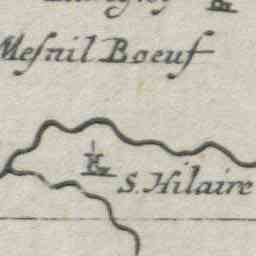 Mesnil Boeuf
S. Hilaire